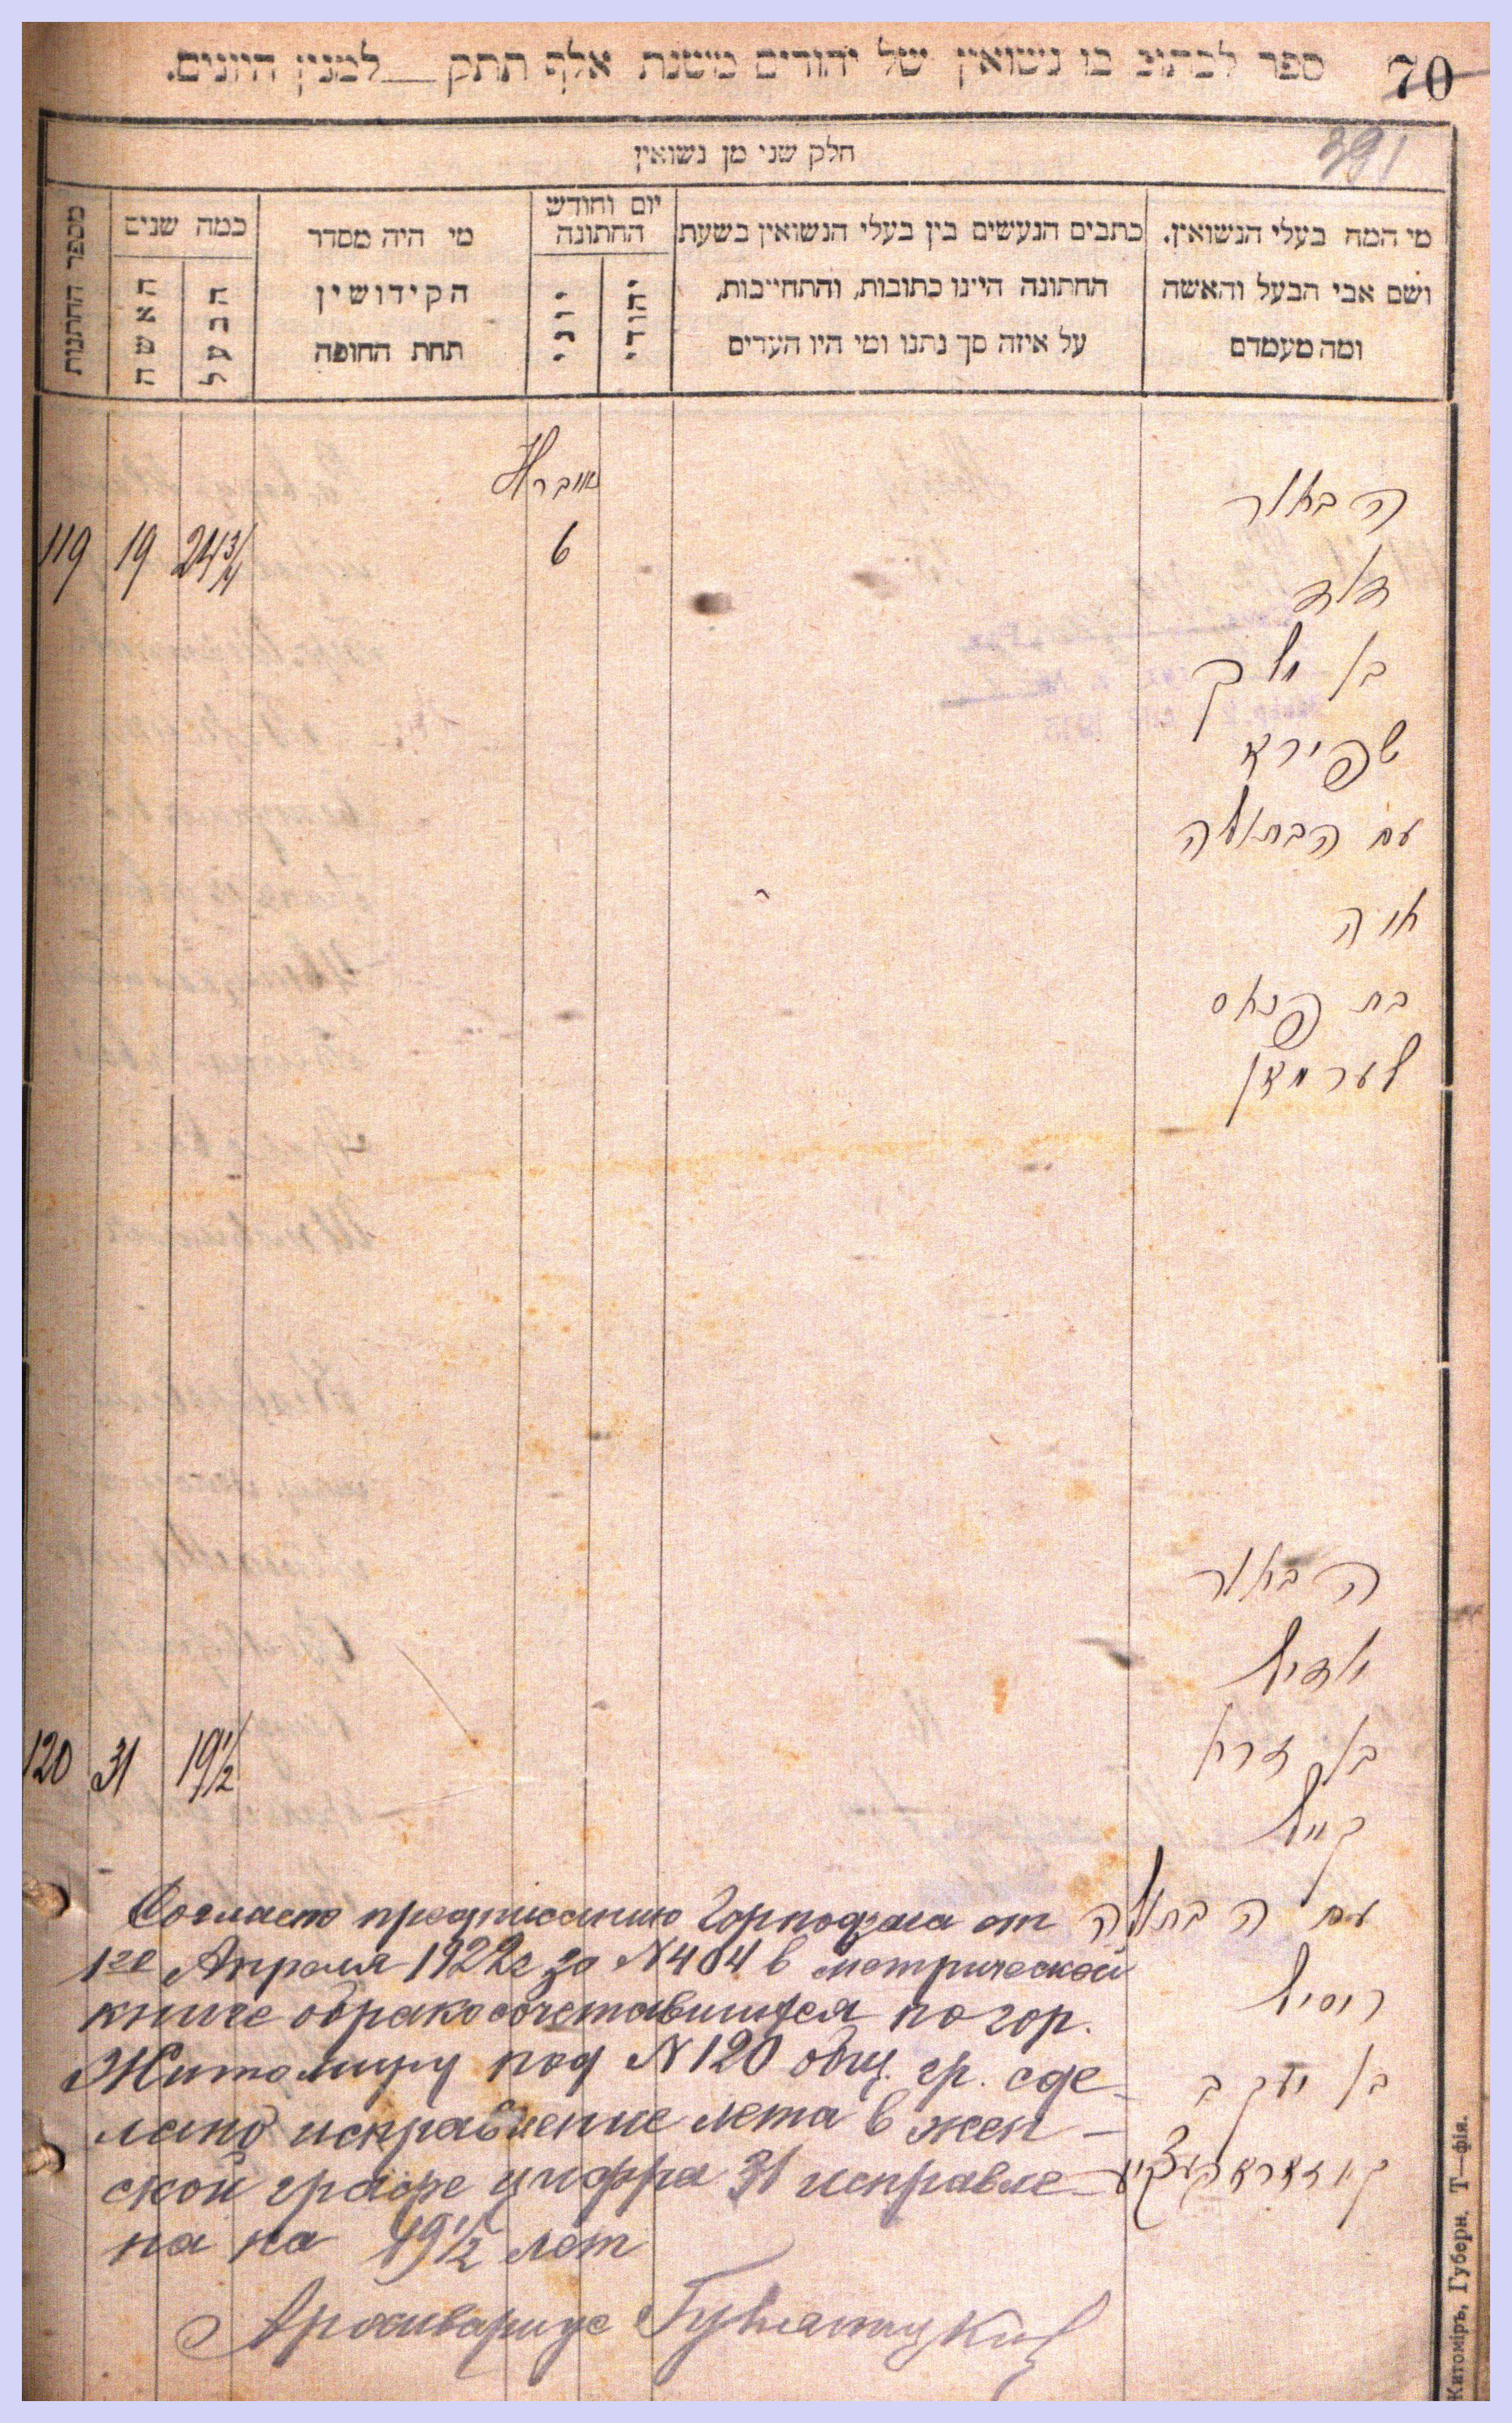 70
ספר לכתוב בו נשואין של יהודים משנת אלף תתק __ למנין היונים.
391
חלק שני מן נשואין
מי המה בעלי הנשואין.
ושם אבי הבעל והאשה
ומה מעמדם
כתבים הנעשים בין בעלי הנשואין בשעת
החתונה היינו כתובות, והתחייבות,
על איזה סך נתנו ומי היו העדים
יום וחודש
החתונה
יהודי
יוני
מי היה מסדר
הקידושין
תחת החופה
כמה שנים
הבעל
האשה
מספר החתנות
הבחור
דוד
בן
שפירא
עם הבתולה
חוה
בת פנחס
לערמאן
6
24 3/4
19
119
הבחור
בן
עם הבתולה
רייזיל
בן יעקב
19 1/2
31
120
Согласно предписанию Горподзага от
1го Апреля 1922г за N 404 в метрической
книге о бракосочетавшихся по гор.
Житомиру под N 120 общ. гр. сде-
лано исправление лета в жен-
ской графе цифра 31 исправле-
на на 19 1/2 лет
Архивариус
Житоміръ, Губерн. Т—фія.